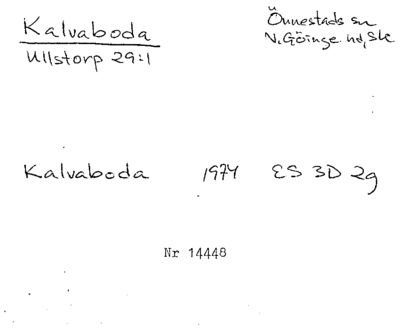 Kalvaboda
Ullstorp 29:1
Önnestads sn
V. Göinge hd, Sk
Kalvaboda 1974 ES 3D 2g
Nr 14448